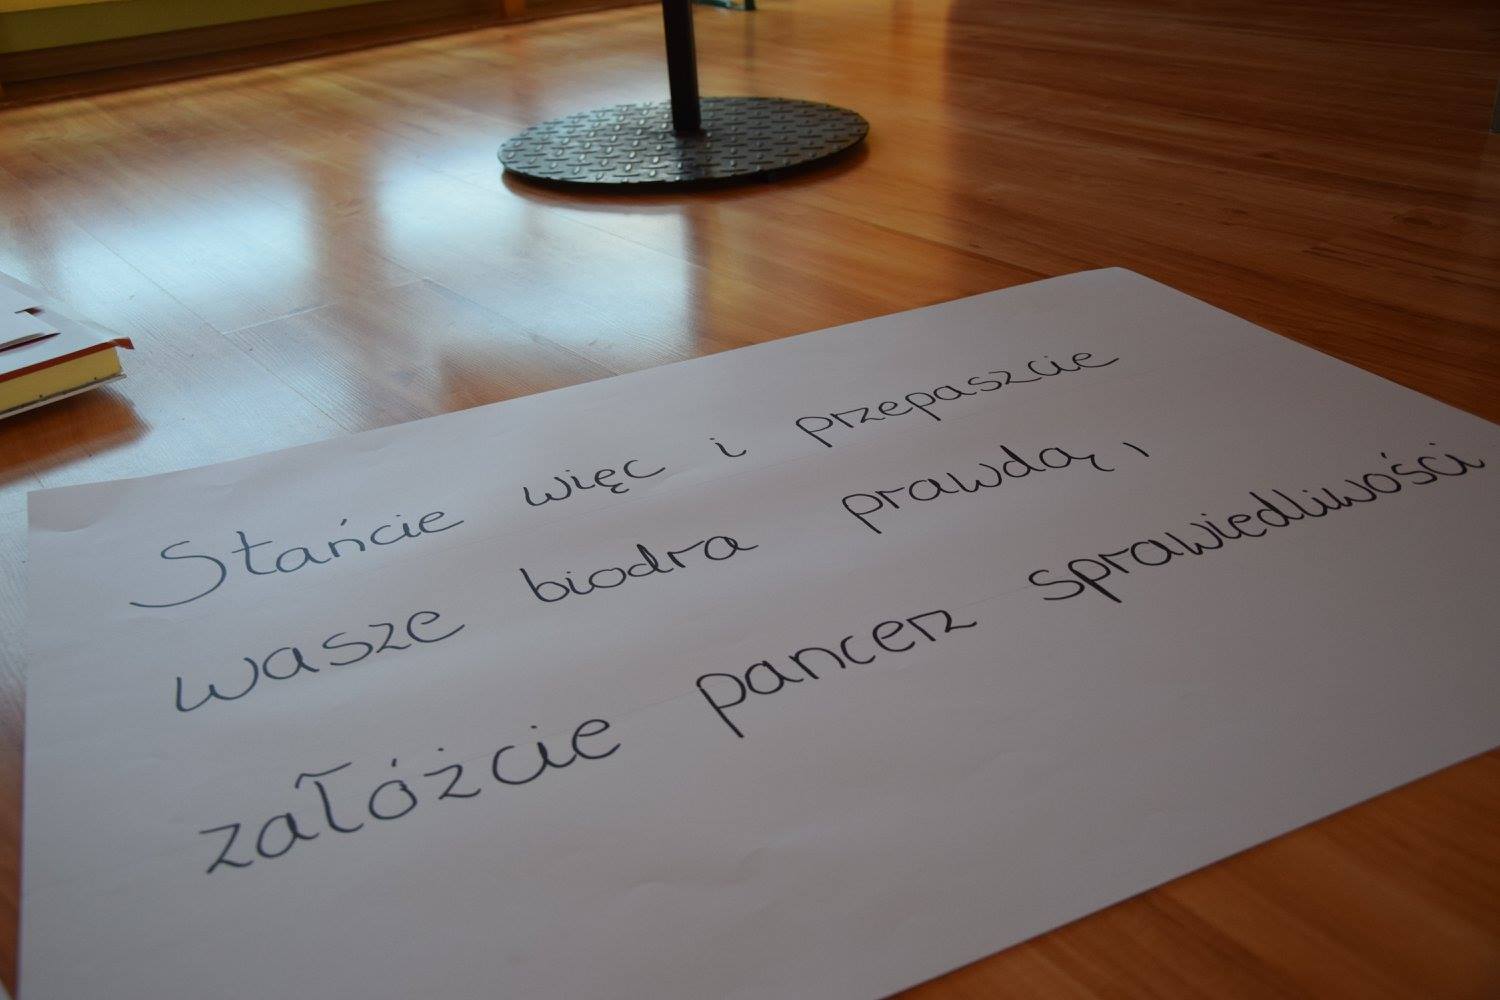 Stańcie więc i przepaszcie
wasze biodra prawdą,
załóżcie pancerz sprawiedliwości